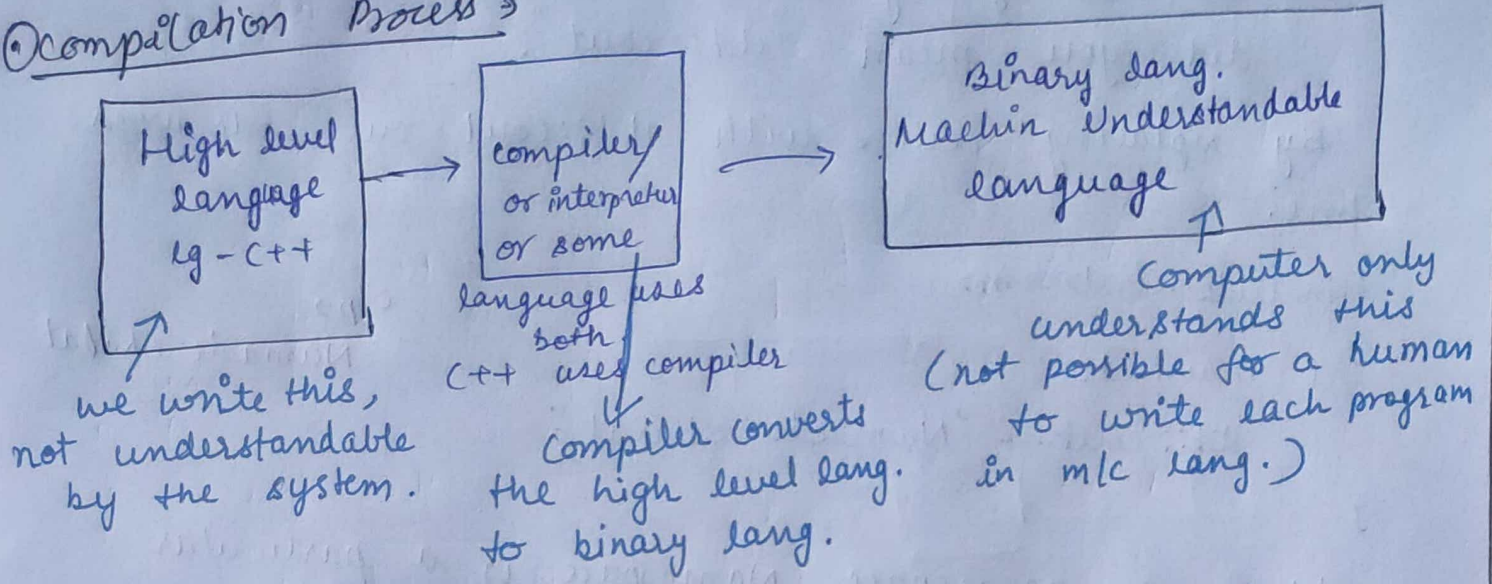 compilation Process
High level
language
eg - C++
compiler/
or interpreter
or some
language uses
both
C++ uses compiler
Binary lang.
Machin Understandable
language
we write this,
not understandable
by the system.
Compiler converts
the high level lang.
to binary lang.
Computer only
understands this
(not possible for a human
to write each program
in m/c lang.)